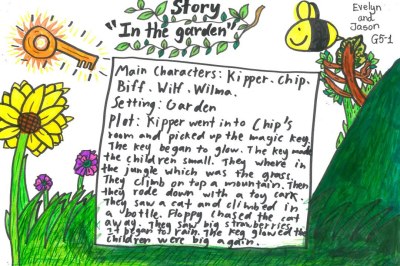 Story
"In the garden"
Evelyn
and
Jason
G5-1
Main Characters: Kipper. Chip.
Biff. Wilf. Wilma.
Setting: Garden
Plot: Kipper went into Chip's
room and picked up the magic key.
The key began to glow. The key made
the children small. They where in
the jungle which was the grass.
They climb on top a mountain. Then
they rode down with a toy car.
They saw a cat and climbed in
a bottle. Floppy chased the cat
away. They saw big strawberries
It began to rain. The key glowed the
children were big again.